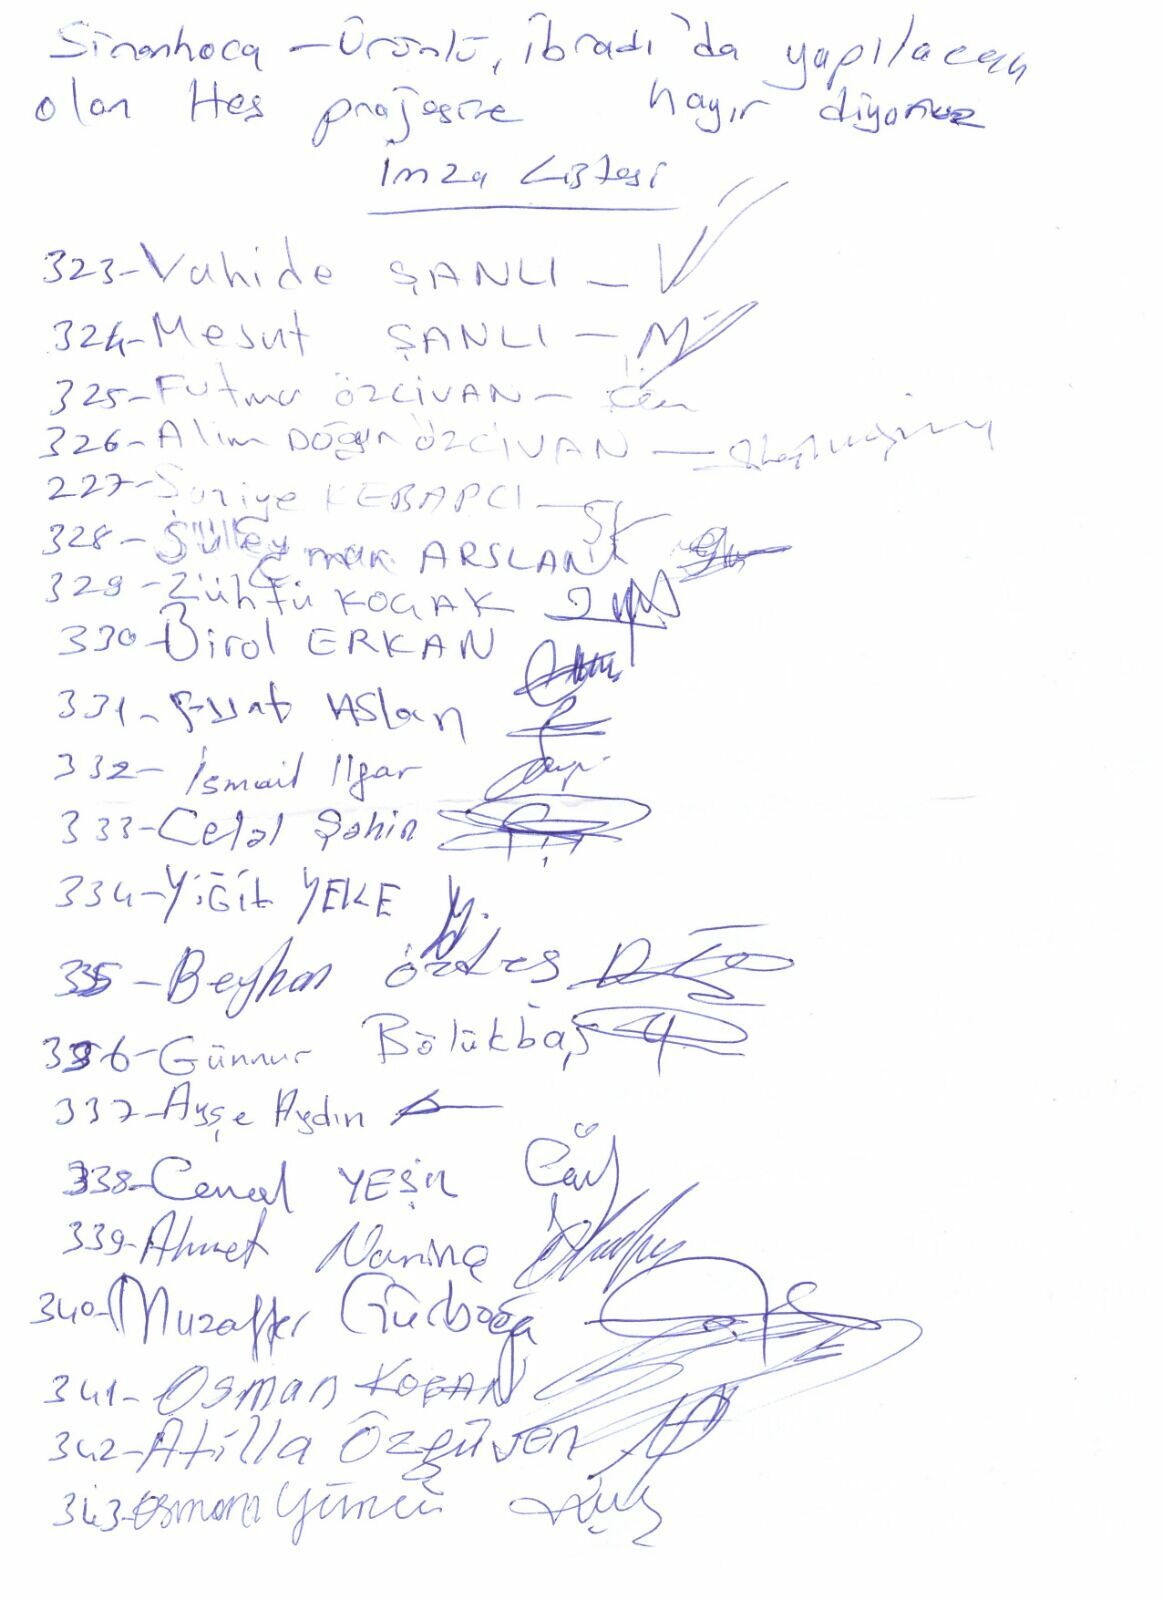 Sinanhoca - Ürünlü, İbradı'da yapılacak
olan Hes projesine hayır diyoruz
İmza Listesi
323- Vahide ŞANLI -
324- Mesut ŞANLI -
325- Fatma ÖZCİVAN -
326- Alim Doğan ÖZCİVAN -
227- KEBAPCI -
328- Süleyman ARSLAN
329- Zühtü KOÇAK
330- Birol ERKAN
331- Fuat ASLan
332- İsmail Ilgar
333- Celal Şahin
334- YİĞİt YEKE
335- Beyhan Özdeş
336- Günnur Bölükbaş
337- Ayşe Aydın
338- Cemal YEŞİL
339- Ahmet
340- Muzaffer Gürboğa
341- Osman KOBAN
342- Atilla Özgüven
343- Osman